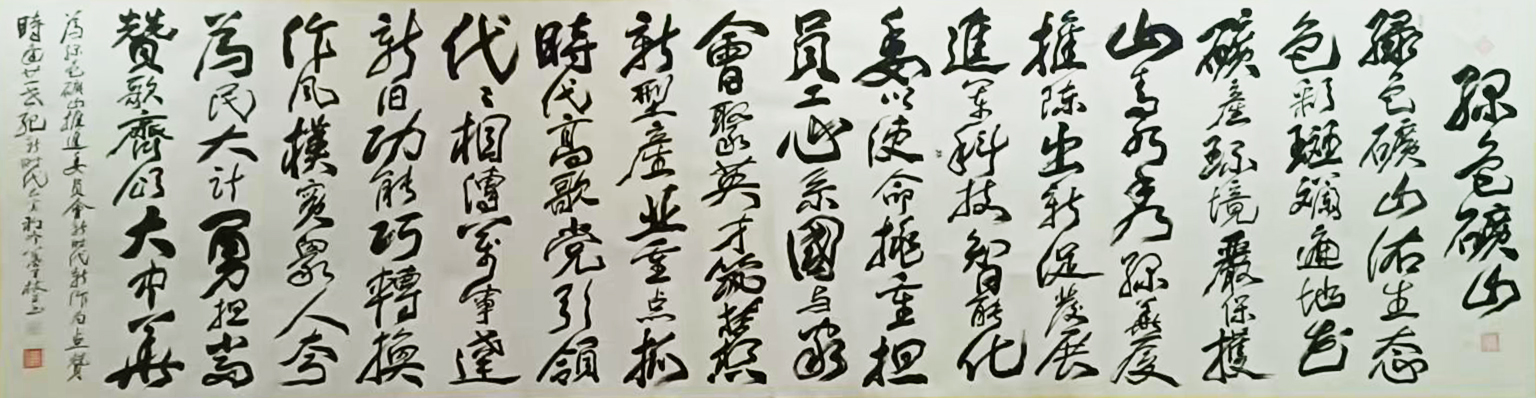 綠色礦山
綠色礦山生态
色彩斑斓遍地花
礦產环境嚴保護
山青水秀綠
推陈出新促發展
進军科技智能化
委以使命挑重担
員工心系國与家
會聚英才筑梦想
新型產业重点抓
時代高歌党引領
代々相傳萬事達
新旧功能巧轉换
作风樸實眾人夸
為民大计勇担當
贊歌齊颂大中華
為綠色礦山推進委員會新時代新作為点贊
時廿一世紀新時代